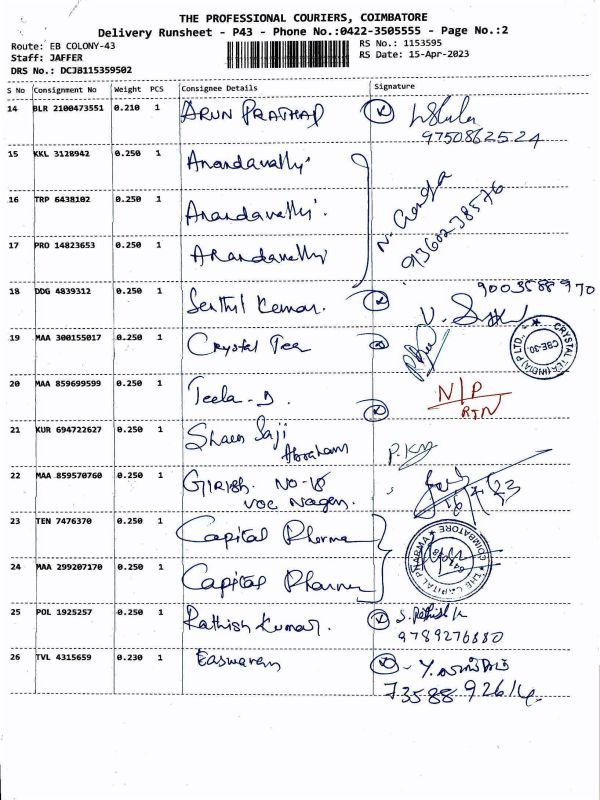 THE PROFESSIONAL COURIERS, COIMBATORE
Delivery Runsheet - P43 - Phone No.:0422-3505555 - Page No.:2
Route: EB COLONY-43
Staff: JAFFER
DRS No.: DCJB115359502
RS No.: 1153595
RS Date: 15-Apr-2023
S No Consignment No Weight PCS Consignee Details Signature
14 BLR 2100473551 0.210 1 ARUN PRATHAP
9750862524
15 KKL 3128942 0.250 1 Anandavally
16 TRP 6438102 0.250 1 Anandavally.
N. Ganga
9360238576
17 PRO 14823653 0.250 1 Anandavally
18 DDG 4839312 0.250 1 Senthil Kumar. 9003588970
19 MAA 300155017 0.250 1 Crystal Tea
CRYSTAL TEA (INDIA) P LTD., CBE-30.
20 MAA 859699599 0.250 1 Teela - D. N/P
RTN
21 KUR 694722627 0.250 1 Shaun Saji
Abraham
22 MAA 859570760 0.250 1 GIRISH. NO-18
VOC Nagar.
23 TEN 7476370 0.250 1 Capital Pharma
THE CAPITAL PHARMA COIMBATORE
24 MAA 299207170 0.250 1 Capital Pharma
25 POL 1925257 0.250 1 Rathish Kumar. S. Rathish k
9789276880
26 TVL 4315659 0.230 1 Easwaran
73588 92614.